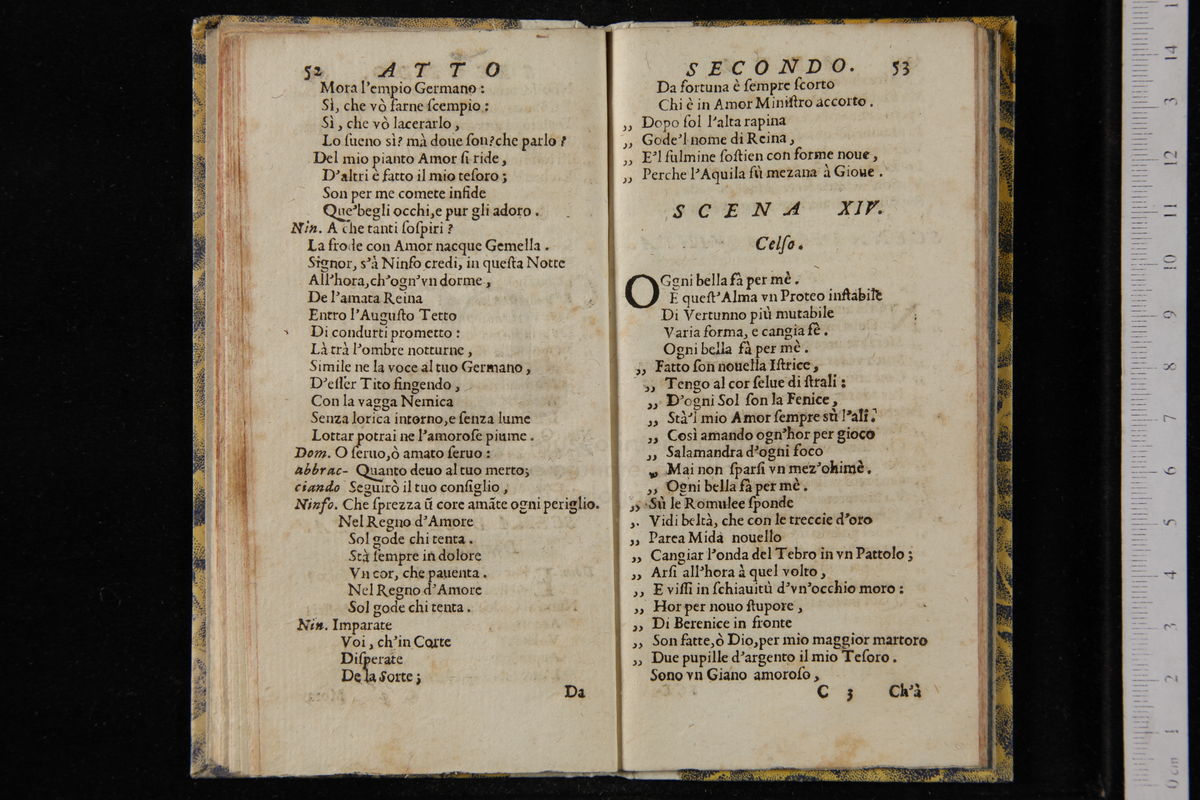 52 ATTO
Mora l'empio Germano :
Sì, che vò farne ſcempio :
Sì, che vò lacerarlo ,
Lo ſueno sì? mà doue ſon? che parlo ?
Del mio pianto Amor ſi ride ,
D'altri è fatto il mio teſoro ;
Son per me comete infide
Que' begli occhi, e pur gli adoro .
Nin. A che tanti ſoſpiri ?
La frode con Amor nacque Gemella .
Signor, s'à Ninfo credi, in queſta Notte
All'hora, ch'ogn'vn dorme ,
De l'amata Reina
Entro l'Auguſto Tetto
Di condurti prometto :
Là trà l'ombre notturne ,
Simile ne la voce al tuo Germano ,
D'eſſer Tito fingendo ,
Con la vagga Nemica
Senza lorica intorno, e ſenza lume
Lottar potrai ne l'amoroſe piume .
Dom. O ſeruo, ò amato ſeruo :
abbrac- Quanto deuo al tuo merto;
ciando Seguirò il tuo conſiglio ,
Ninfo. Che ſprezza ũ core amãte ogni periglio.
Nel Regno d'Amore
Sol gode chi tenta .
Stà ſempre in dolore
Vn cor, che pauenta .
Nel Regno d'Amore
Sol gode chi tenta .
Nin. Imparate
Voi, ch'in Corte
Diſperate
De la Sorte ;
Da
SECONDO. 53
Da fortuna è ſempre ſcorto
Chi è in Amor Miniſtro accorto .
,, Dopo ſol l'alta rapina
,, Gode'l nome di Reina ,
,, E'l fulmine ſoſtien con forme noue ,
,, Perche l'Aquila fù mezana à Gioue .
SCENA XIV.
Celſo.
OGgni bella fà per mè .
E queſt'Alma vn Proteo inſtabile
Di Vertunno più mutabile
Varia forma, e cangia fè .
Ogni bella fà per mè .
,, Fatto ſon nouella Iſtrice ,
,, Tengo al cor ſelue di ſtrali :
,, D'ogni Sol ſon la Fenice ,
,, Stà'l mio Amor ſempre sù l'ali.
,, Così amando ogn'hor per gioco
,, Salamandra d'ogni foco
,, Mai non ſparſi vn mez'ohimè .
,, Ogni bella fà per mè .
,, Sù le Romulee ſponde
,, Vidi beltà, che con le treccie d'oro
,, Parea Mida nouello
,, Cangiar l'onda del Tebro in vn Pattolo ;
,, Arſi all'hora à quel volto ,
,, E viſſi in ſchiauitù d'vn'occhio moro :
,, Hor per nouo ſtupore ,
,, Di Berenice in fronte
,, Son fatte, ò Dio, per mio maggior martoro
,, Due pupille d'argento il mio Teſoro .
Sono vn Giano amoroſo ,
C 3 Ch'à
0 cm 1 2 3 4 5 6 7 8 9 10 11 12 3 14